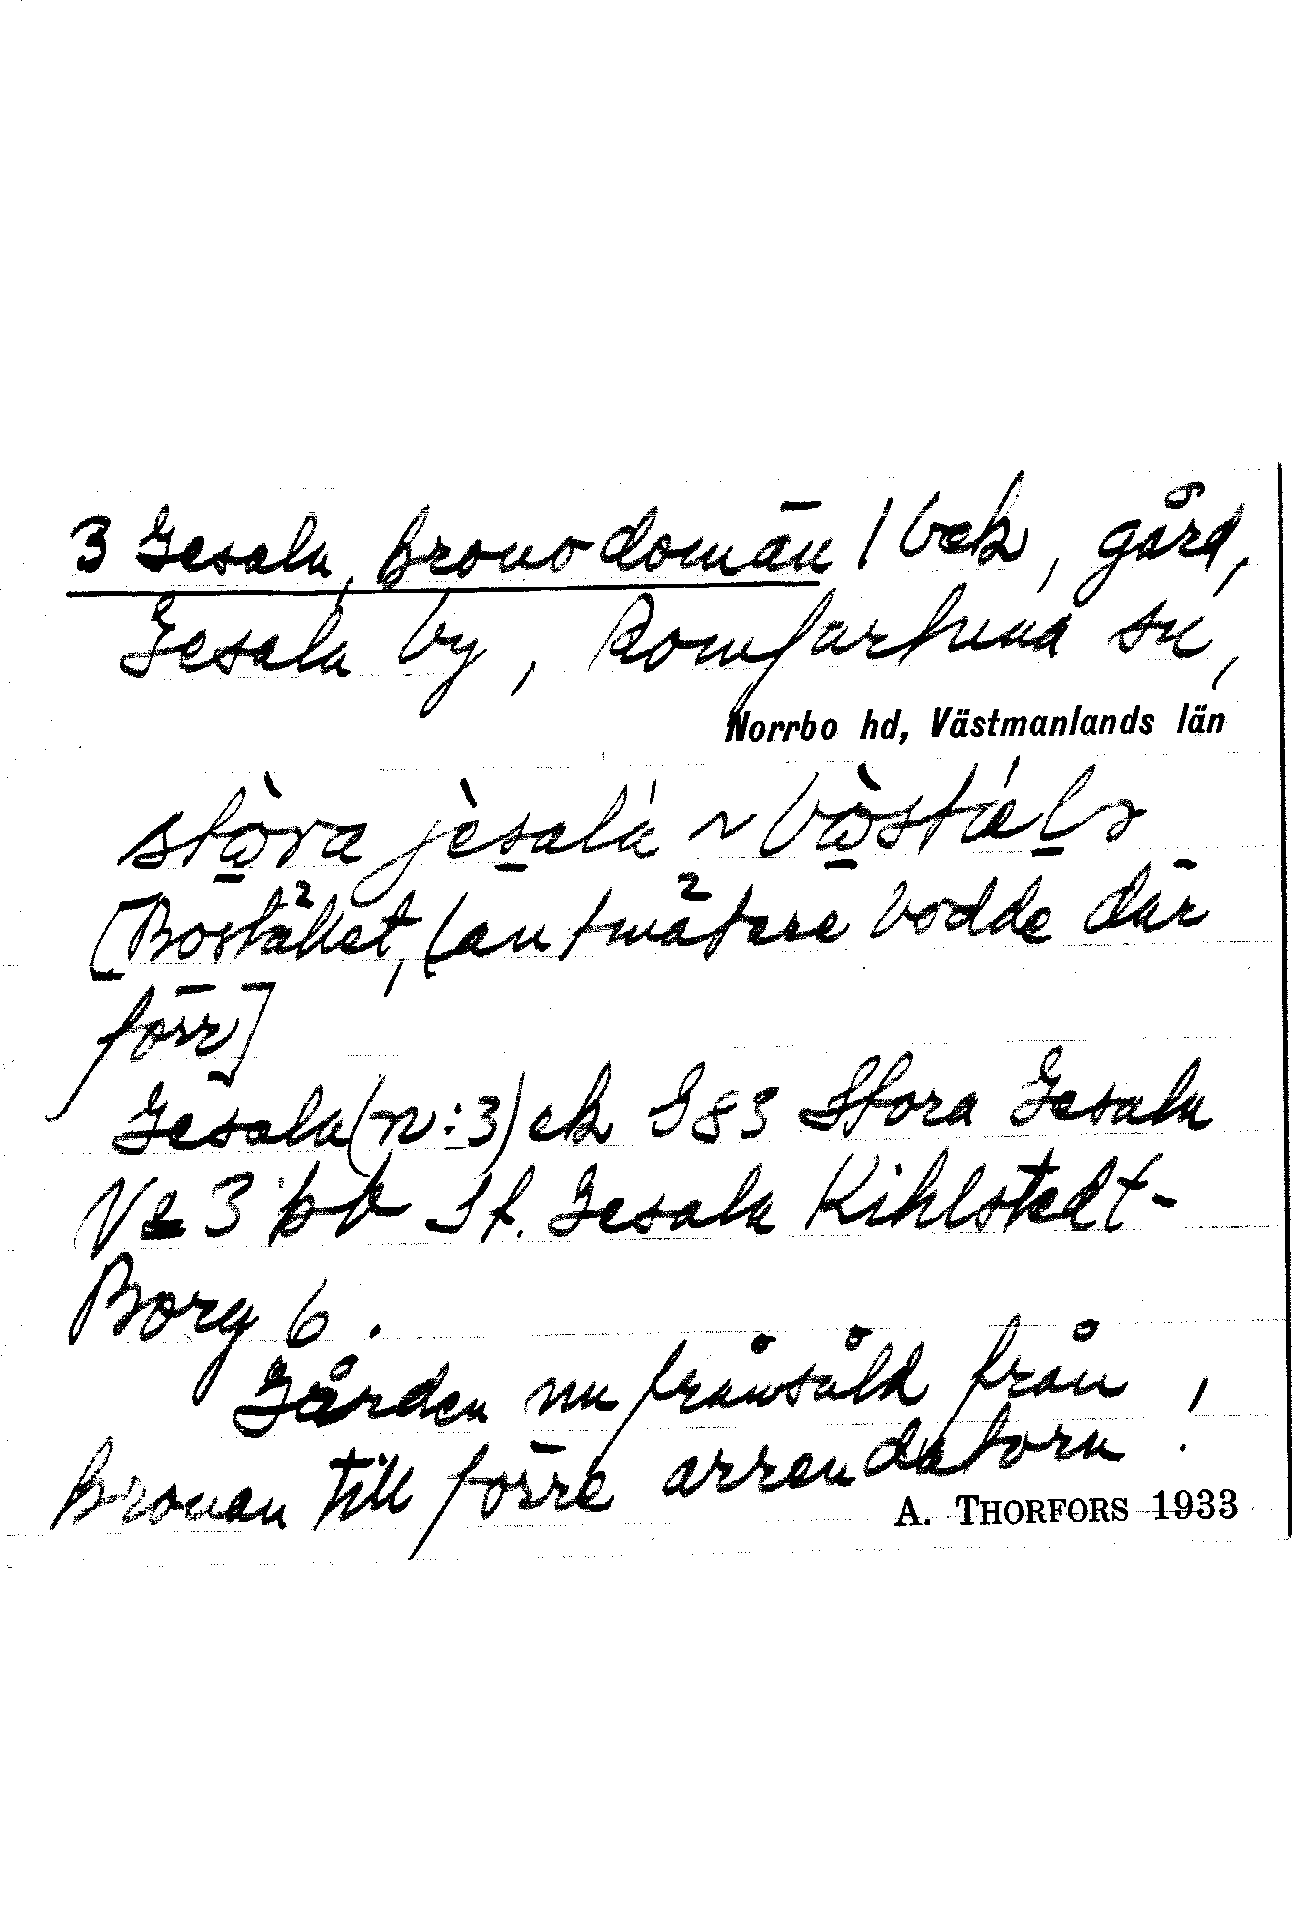 3 Gesala, kronodomän / bek, gård,
Gesala by, Romfartuna sn,
Norrbo hd, Västmanlands län
stòra jèsalá ~ bòstǽlr
[Bostället, lantmätere bodde där
förr]
Gesala (n:3) ek G 83 Stora Gesala
N:o 3 St. Gesala Kihlstedt-
Borg 6.
Gården nu frånsåld från
Kronan till förre arrendatorn!
A. THORFORS 1933